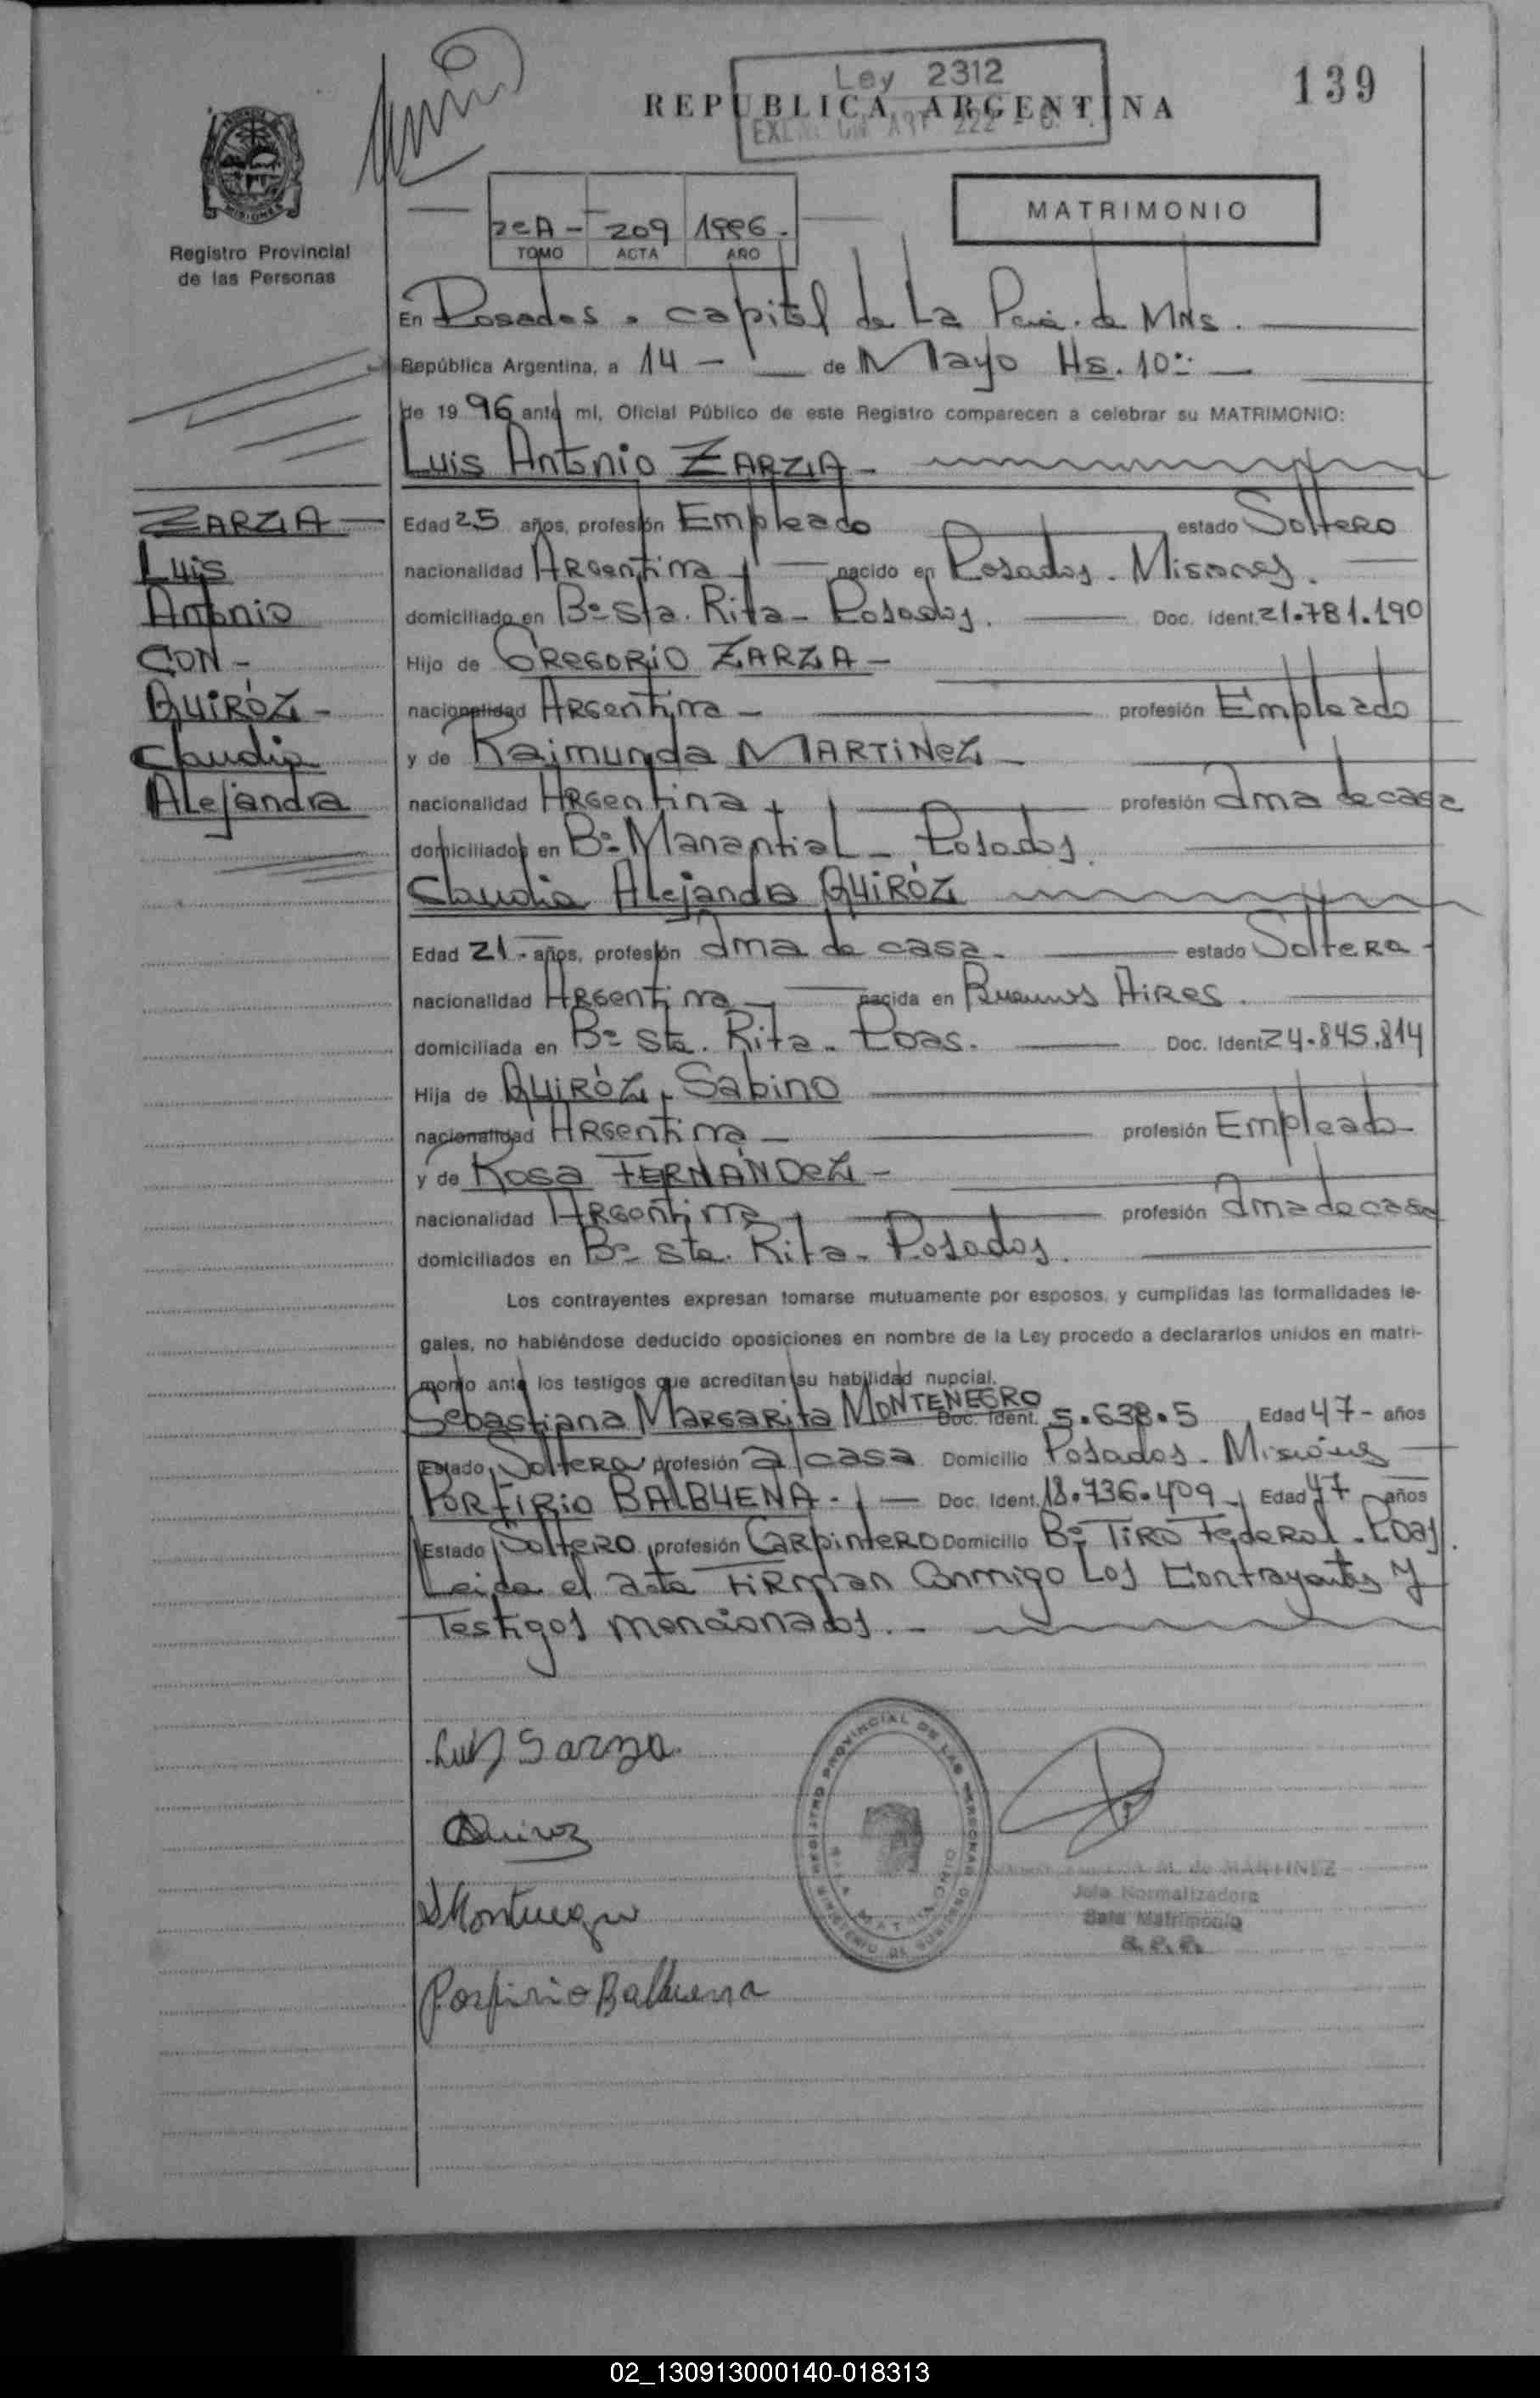 Ley 2312
139
REPUBLICA ARGENTINA
MATRIMONIO
2cA - 209 1996.
TOMO ACTA AÑO
Registro Provincial
de las Personas
En Posadas. capital de La Pcia. de Mnes.
República Argentina, a 14 - de Mayo Hs. 10:
de 1996 ante mí, Oficial Público de este Registro comparecen a celebrar su MATRIMONIO:
Luis Antonio ZARZA -
ZARZA
Luis
Antonio
CON -
QUIRÓZ -
Claudia
Alejandra
Edad 25 años, profesión Empleado estado Soltero
nacionalidad Argentina nacido en Posadas. Misiones.
domiciliado en Bº Sta. Rita - Posadas. Doc. Ident. 21.781.190
Hijo de GREGORIO ZARZA -
nacionalidad Argentina - profesión Empleado
y de Raimunda MARTINEZ -
nacionalidad Argentina profesión Ama de casa
domiciliados en Bº Manantial - Posadas.
Claudia Alejandra QUIRÓZ
Edad 21 - años, profesión Ama de casa. estado Soltera
nacionalidad Argentina nacida en Buenos Aires.
domiciliada en Bº Sta. Rita - Pdas. Doc. Ident. 24.845.814
Hija de QUIRÓZ, Sabino
nacionalidad Argentina - profesión Empleado
y de Rosa FERNÁNDEZ -
nacionalidad Argentina profesión Ama de casa
domiciliados en Bº Sta. Rita - Posadas.
Los contrayentes expresan tomarse mutuamente por esposos, y cumplidas las formalidades le-
gales, no habiéndose deducido oposiciones en nombre de la Ley procedo a declararlos unidos en matri-
monio ante los testigos que acreditan su habilidad nupcial.
Sebastiana Margarita MONTENEGRO Doc. Ident. 5.638.5 Edad 47 - años
Estado Soltera profesión a/casa Domicilio Posadas - Misiones
PORFIRIO BALBUENA - Doc. Ident. 18.736.409 Edad 47 años
Estado Soltero profesión Carpintero Domicilio Bº Tiro Federal - Pdas.
Leida el acta Firman Conmigo Los Contrayentes Y
Testigos mencionados. -
Luis Sarza
Quiroz
SMontenegro
Porfirio Balbuena
REGISTRO PROVINCIAL DE LAS PERSONAS
MINISTERIO DE GOBIERNO
M. de MARTINEZ
Jefa Normalizadora
Sala Matrimonio
02_130913000140-018313